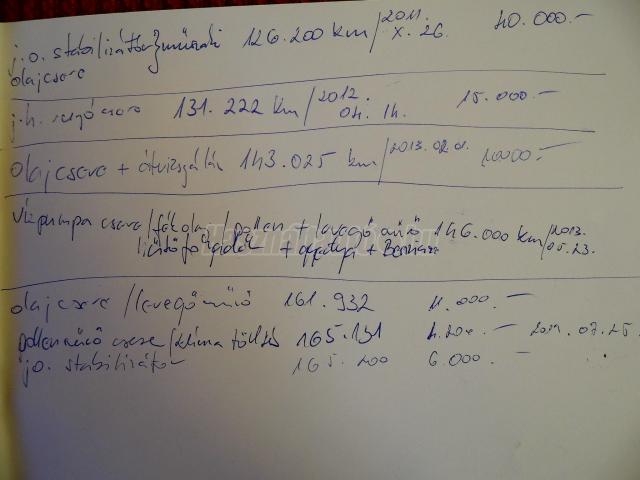 j.o. stabilizátor műszaki 126.200 km/2011. X. 26. 40.000.-
olajcsere
j.h. rugócsere 131.222 km/2012. 04. 14. 15.000.-
olajcsere + átvizsgálás 143.025 km/2013.02.01. 10000.-
Vízpumpa csere/fékolaj/pollen + levegőszűrő 146.000 km/2013. 05.23.
hűtőfolyadék + + 
olajcsere/levegőszűrő 161.932 11.000.-
pollenszűrő csere/klíma töltés 165.131 .- 07.25.
jo. stabilizátor 165.200 6.000.-